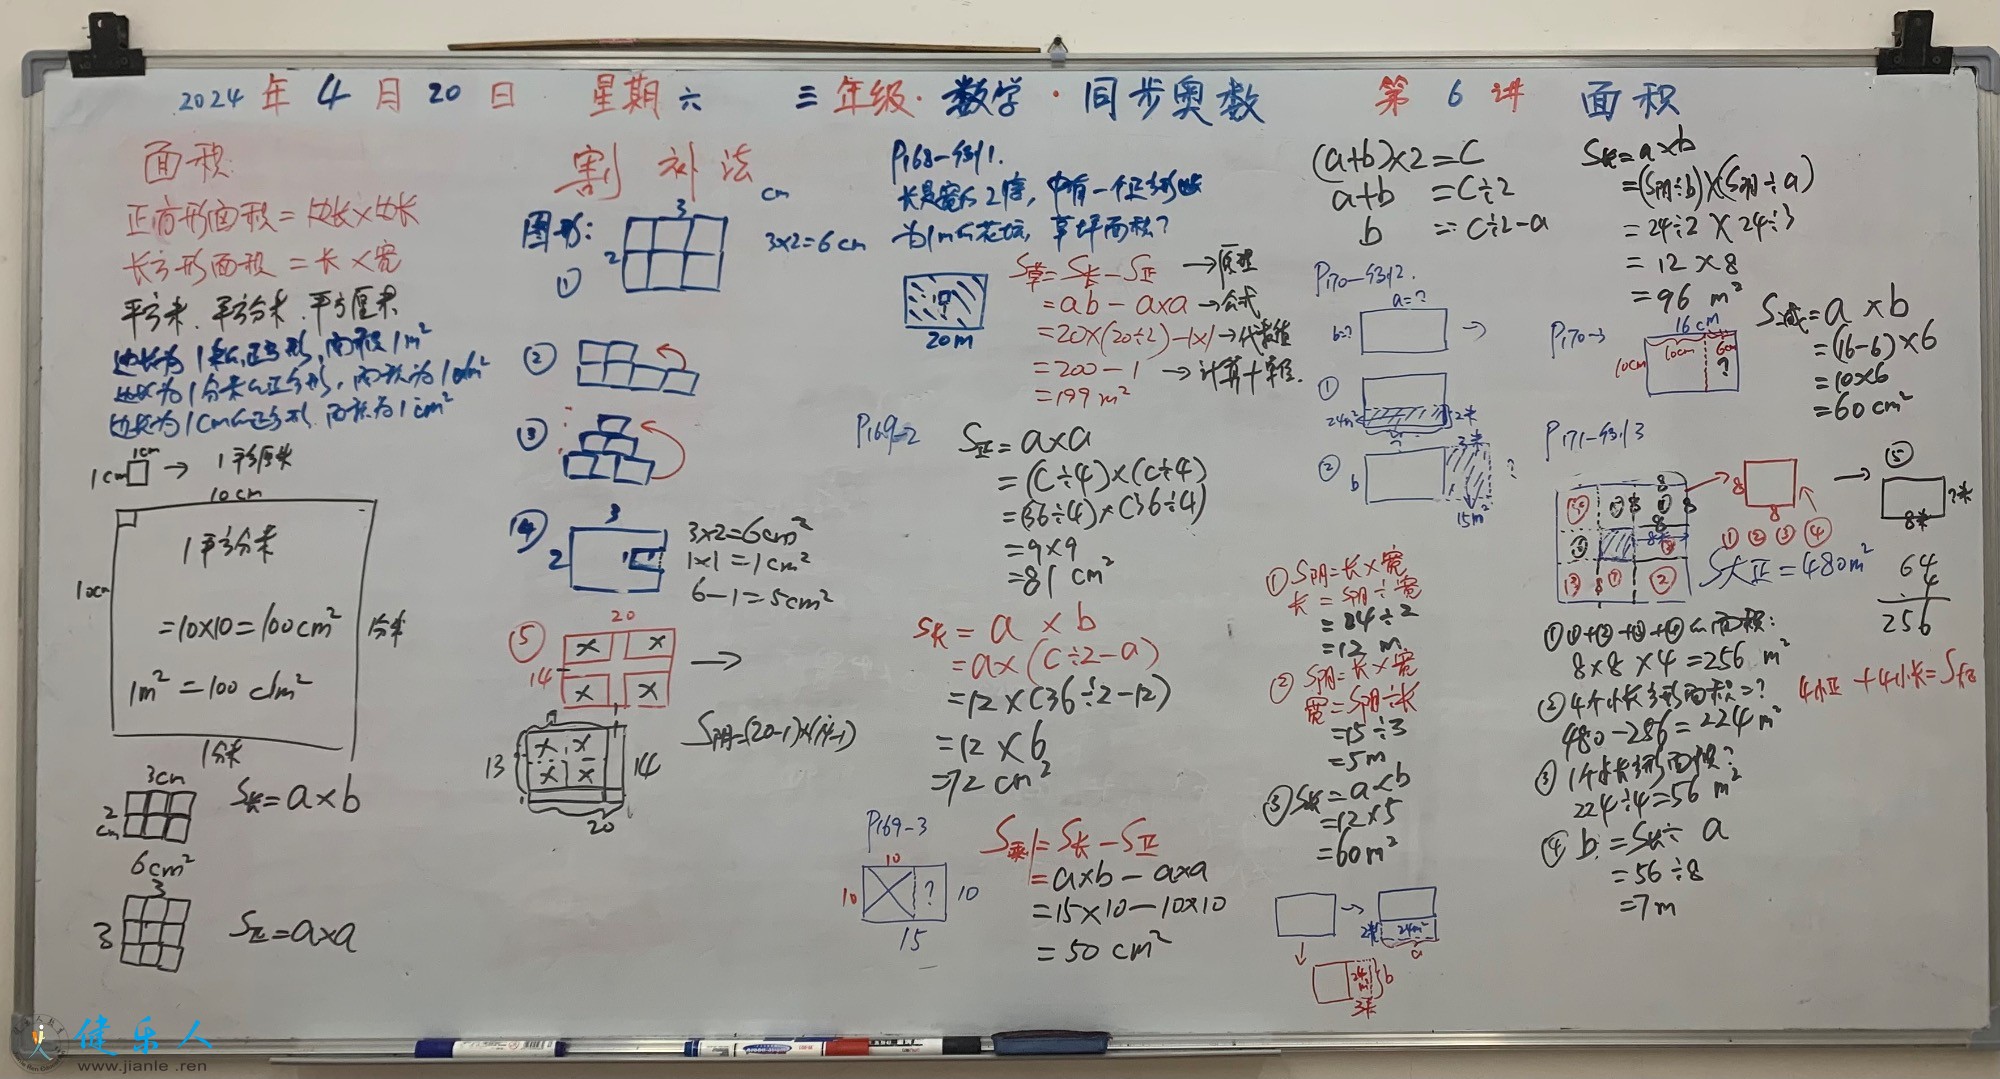 2024年4月20日 星期六 三年级·数学·同步奥数 第6讲 面积
面积
正方形面积=边长×边长
长方形面积=长×宽
平方米、平方分米、平方厘米
边长为1米的正方形,面积1m²
边长为1分米的正方形,面积为1dm²
边长为1cm的正方形,面积为1cm²
1cm
1cm → 1平方厘米
10cm
1平方分米
10cm
=10×10=100cm²
1分米
1m²=100dm²
1分米
3cm
2
cm
S长=a×b
6cm²
3
3
S正=a×a
割补法
cm
图形:
3
2
3×2=6cm
①
②
③
④
3
2
1
3×2=6cm²
1×1=1cm²
6-1=5cm²
⑤
20
14
× ×
× ×
13
× ×
× ×
14
20
S阴=(20-1)×(14-1)
P168-例1.
长是宽的2倍,中有一个正方形边
为1m的花坛,草坪面积?
20m
S草=S长-S正 →原理
=ab-a×a →公式
=20×(20÷2)-1×1 →代数值
=200-1 →计算+单位.
=199m²
P169-2
S正=a×a
=(C÷4)×(C÷4)
=(36÷4)×(36÷4)
=9×9
=81cm²
S长=a×b
=a×(C÷2-a)
=12×(36÷2-12)
=12×6
=72cm²
P169-3
10
10
?
10
15
S剩=S长-S正
=a×b-a×a
=15×10-10×10
=50cm²
(a+b)×2=C
a+b=C÷2
b=C÷2-a
P170-例2.
a=?
b=?
①
24m²
2米
②
b
3米
?
15m²
①S阴=长×宽
长=S阴÷宽
=24÷2
=12m
②S阴=长×宽
宽=S阴÷长
=15÷3
=5m
③S长=a×b
=12×5
=60m²
2米
24m²
a
24
m²
b
3米
S长=a×b
=(S阴÷b)×(S阴÷a)
=24÷2×24÷3
=12×8
=96m²
P170-3
16cm
10cm
10cm
6cm
?
S减=a×b
=(16-6)×6
=10×6
=60cm²
P171-例3
8
8
8
8米
8
8
①②③④
⑤
?米
8米
S大正=480m²
64
4
256
①①+②+③+④的面积:
8×8×4=256m²
4小正+4小长=S大正
②4个小长方形面积=?
480-286=224m²
③1个小长方形面积?
224÷4=56m²
④b=S长÷a
=56÷8
=7m
健乐人
www.jianle.ren